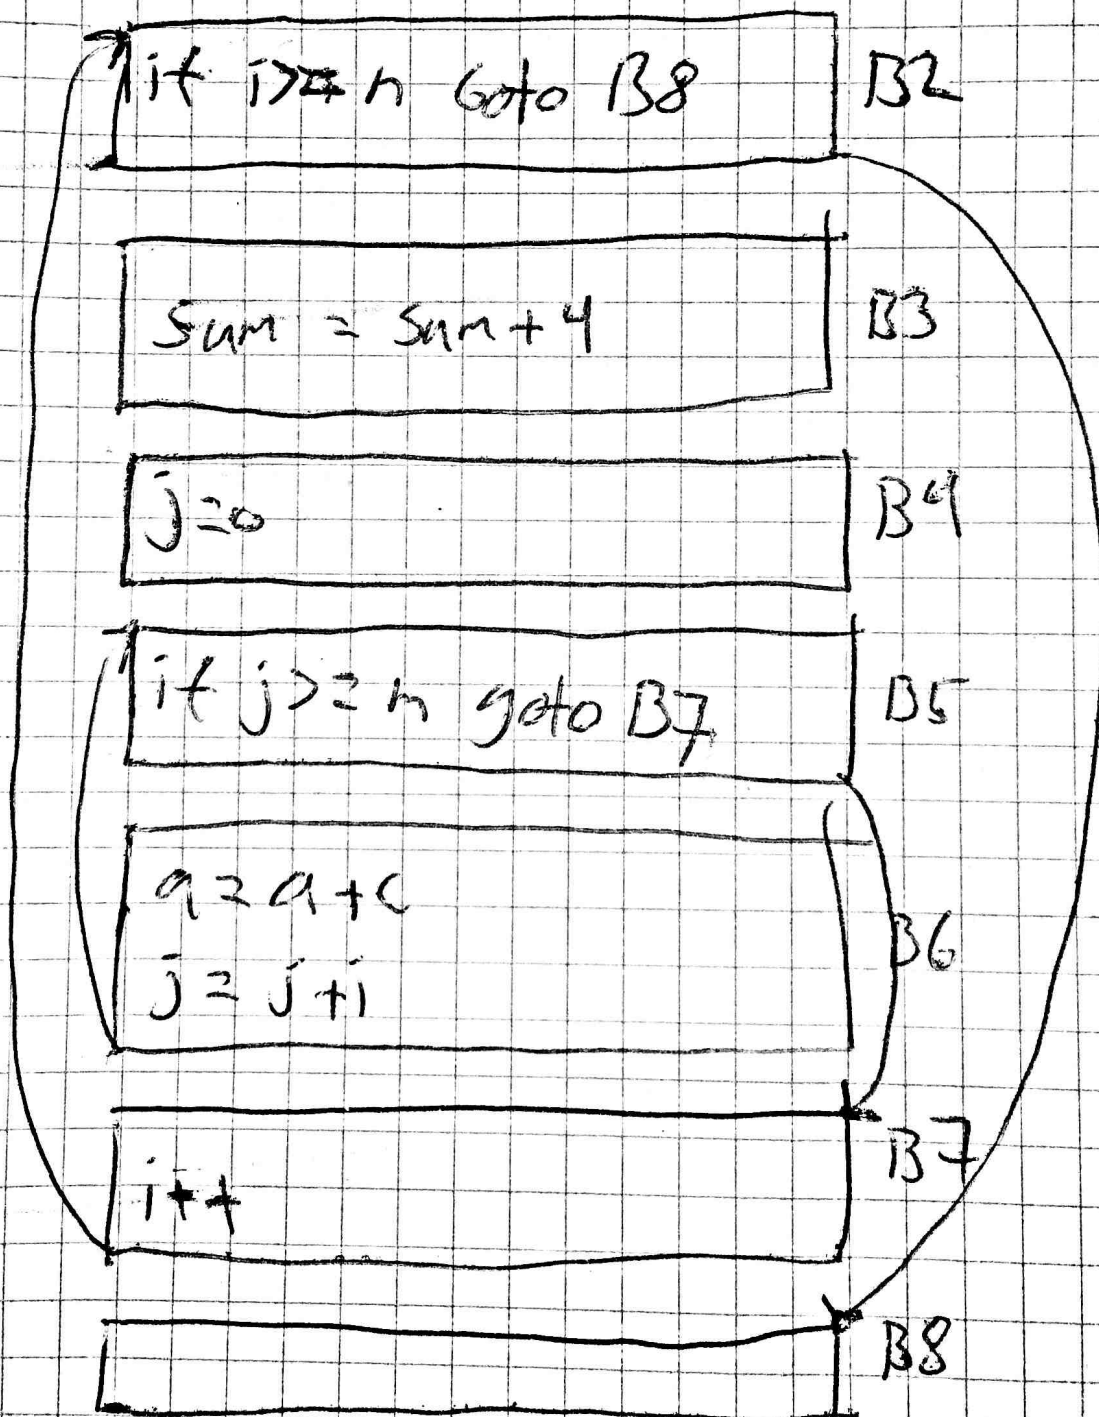 if i>= n Goto B8 B2
sum = sum+4 B3
j=0 B4
if j>=n goto B7 B5
a=a+c
j= j+i B6
i++ B7
B8